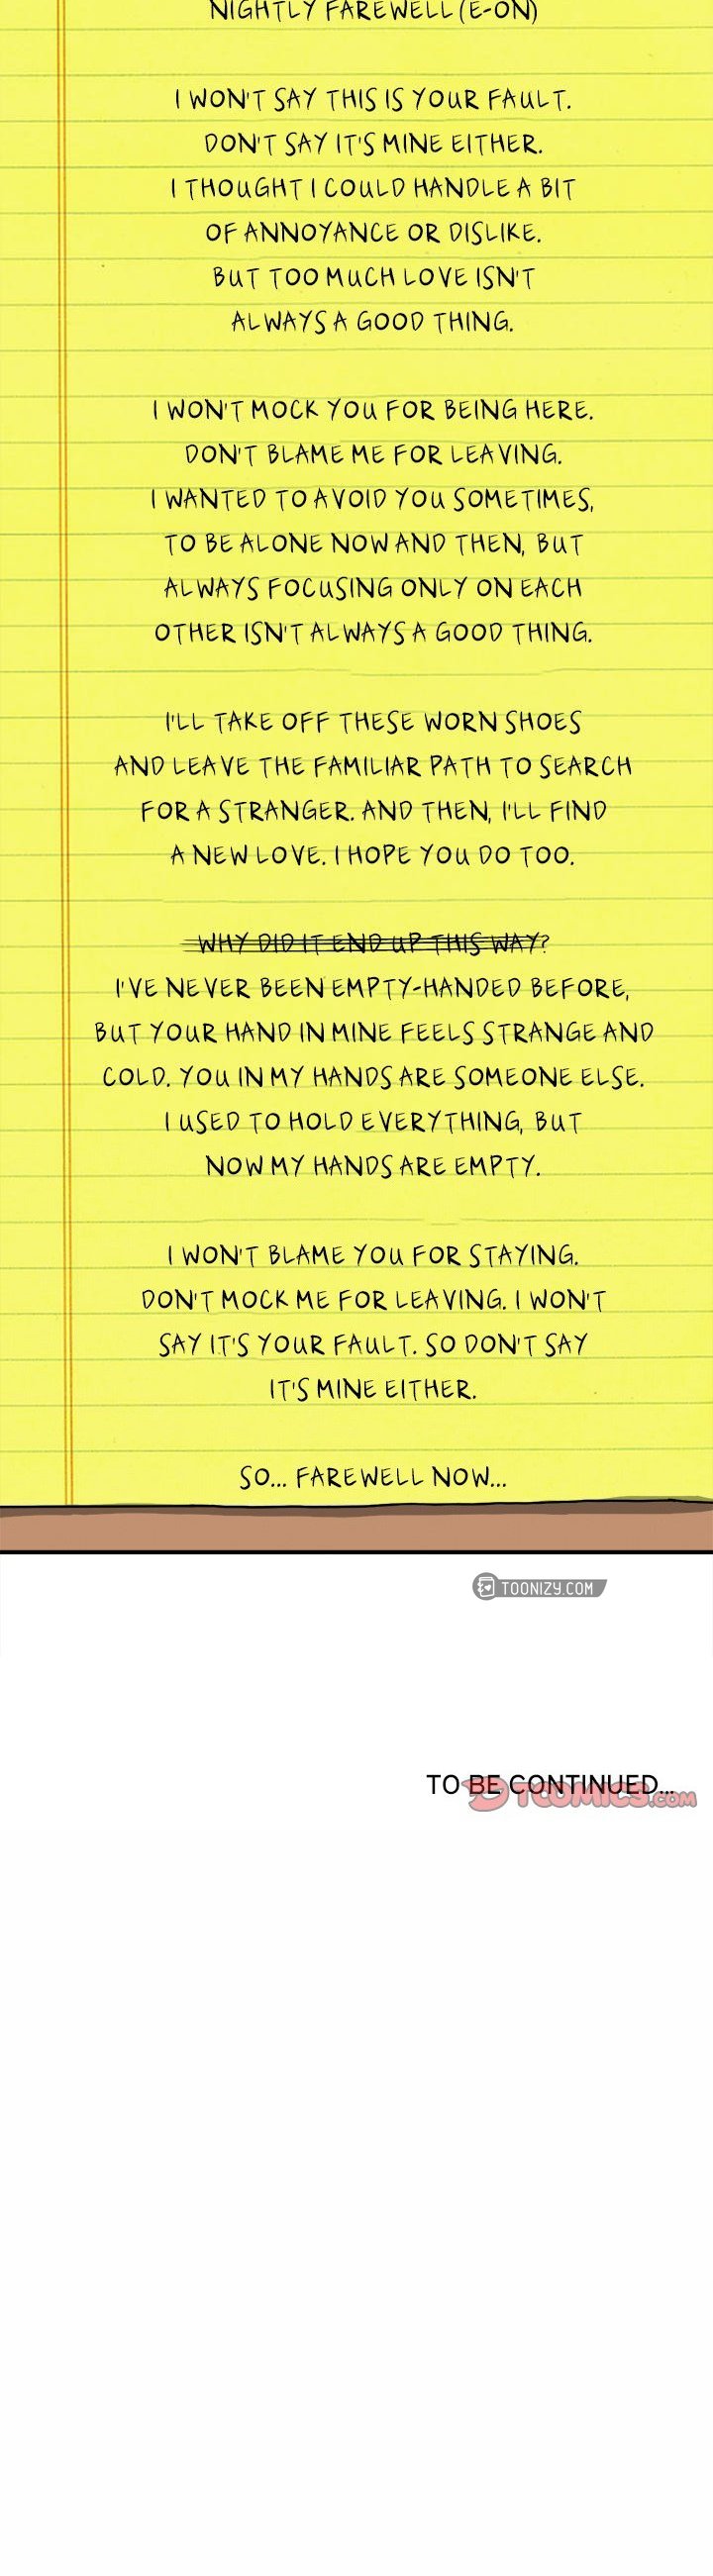 NIGHTLY FAREWELL (E-ON)
I WON'T SAY THIS IS YOUR FAULT.
DON'T SAY IT'S MINE EITHER.
I THOUGHT I COULD HANDLE A BIT
OF ANNOYANCE OR DISLIKE.
BUT TOO MUCH LOVE ISN'T
ALWAYS A GOOD THING.
I WON'T MOCK YOU FOR BEING HERE.
DON'T BLAME ME FOR LEAVING.
I WANTED TO AVOID YOU SOMETIMES,
TO BE ALONE NOW AND THEN, BUT
ALWAYS FOCUSING ONLY ON EACH
OTHER ISN'T ALWAYS A GOOD THING.
I'LL TAKE OFF THESE WORN SHOES
AND LEAVE THE FAMILIAR PATH TO SEARCH
FOR A STRANGER. AND THEN, I'LL FIND
A NEW LOVE. I HOPE YOU DO TOO.
WHY DID IT END UP THIS WAY?
I'VE NEVER BEEN EMPTY-HANDED BEFORE,
BUT YOUR HAND IN MINE FEELS STRANGE AND
COLD. YOU IN MY HANDS ARE SOMEONE ELSE.
I USED TO HOLD EVERYTHING, BUT
NOW MY HANDS ARE EMPTY.
I WON'T BLAME YOU FOR STAYING.
DON'T MOCK ME FOR LEAVING. I WON'T
SAY IT'S YOUR FAULT. SO DON'T SAY
IT'S MINE EITHER.
SO... FAREWELL NOW...
TOONIZY.COM
TO BE CONTINUED...
DTCOMICS.COM